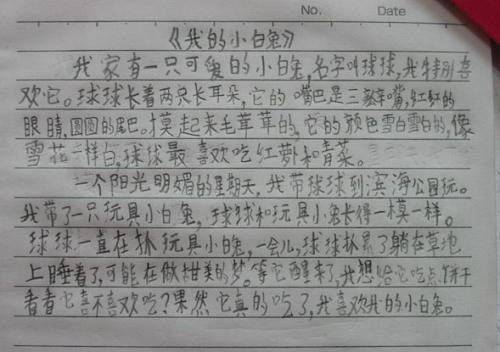 No. Date
《我的小白兔》
我家有一只可爱的小白兔,名字叫球球,我特别喜
欢它。球球长着两只长耳朵,它的嘴巴是三瓣嘴,红红的
眼睛,圆圆的尾巴。摸起来毛茸茸的,它的颜色雪白雪白的,像
雪花一样白,球球最喜欢吃红萝卜和青菜。
一个阳光明媚的星期天,我带球球到滨海公园玩。
我带了一只玩具小白兔,球球和玩具小兔长得一模一样。
球球一直在扒玩具小白兔,一会儿,球球扒累了躺在草地
上睡着了,可能在做甜美的梦。等它醒来了,我想给它吃点饼干
看看它喜不喜欢吃?果然它真的吃了,我喜欢我的小白兔。